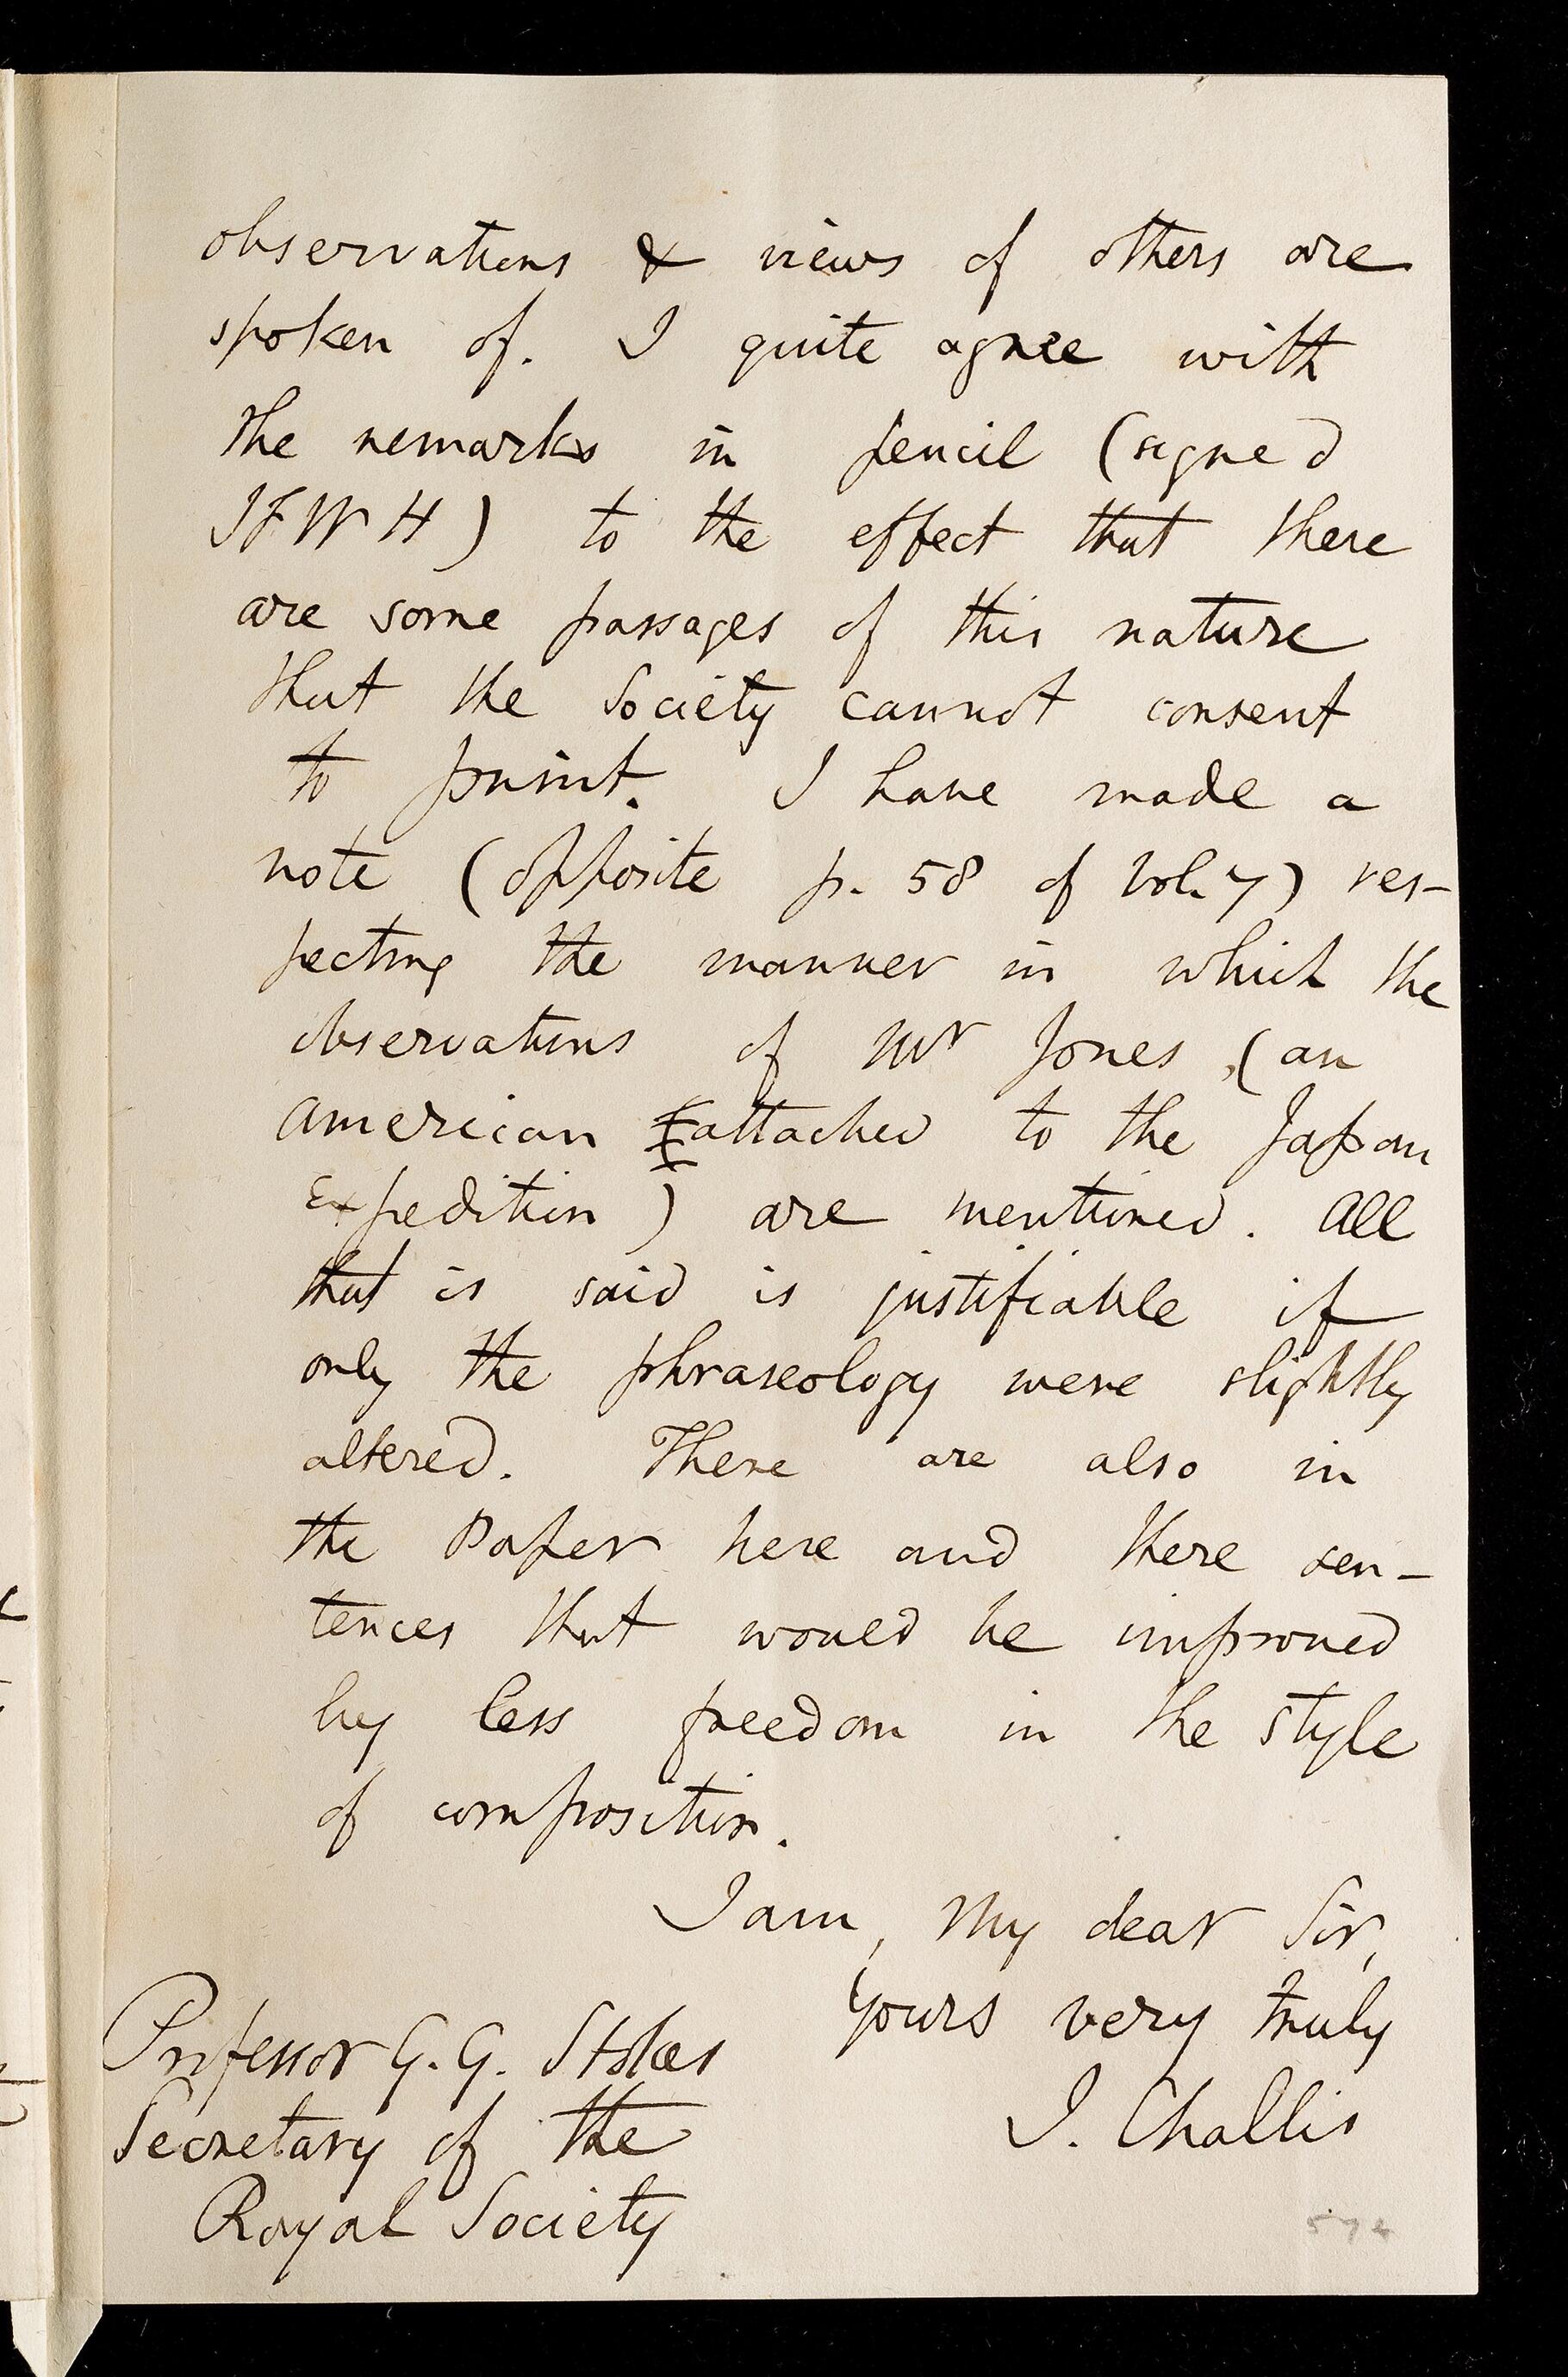 observations & views of others are
spoken of. I quite agree with
the remarks in pencil (signed
JFWH) to the effect that there
are some passages of this nature
that the Society cannot consent
to print. I have made a
note (opposite p. 58 of Vol. 7) res-
pecting the manner in which the
observations of Mr Jones, (an
American attached to the Japan
Expedition) are mentioned. All
that is said is justifiable if
only the phraseology were slightly
altered. There are also in
the Paper here and there sen-
tences that would be improved
by less freedom in the style
of composition.
I am, My dear Sir,
Yours very truly
J. Challis
Professor G. G. Stokes
Secretary of the
Royal Society
574